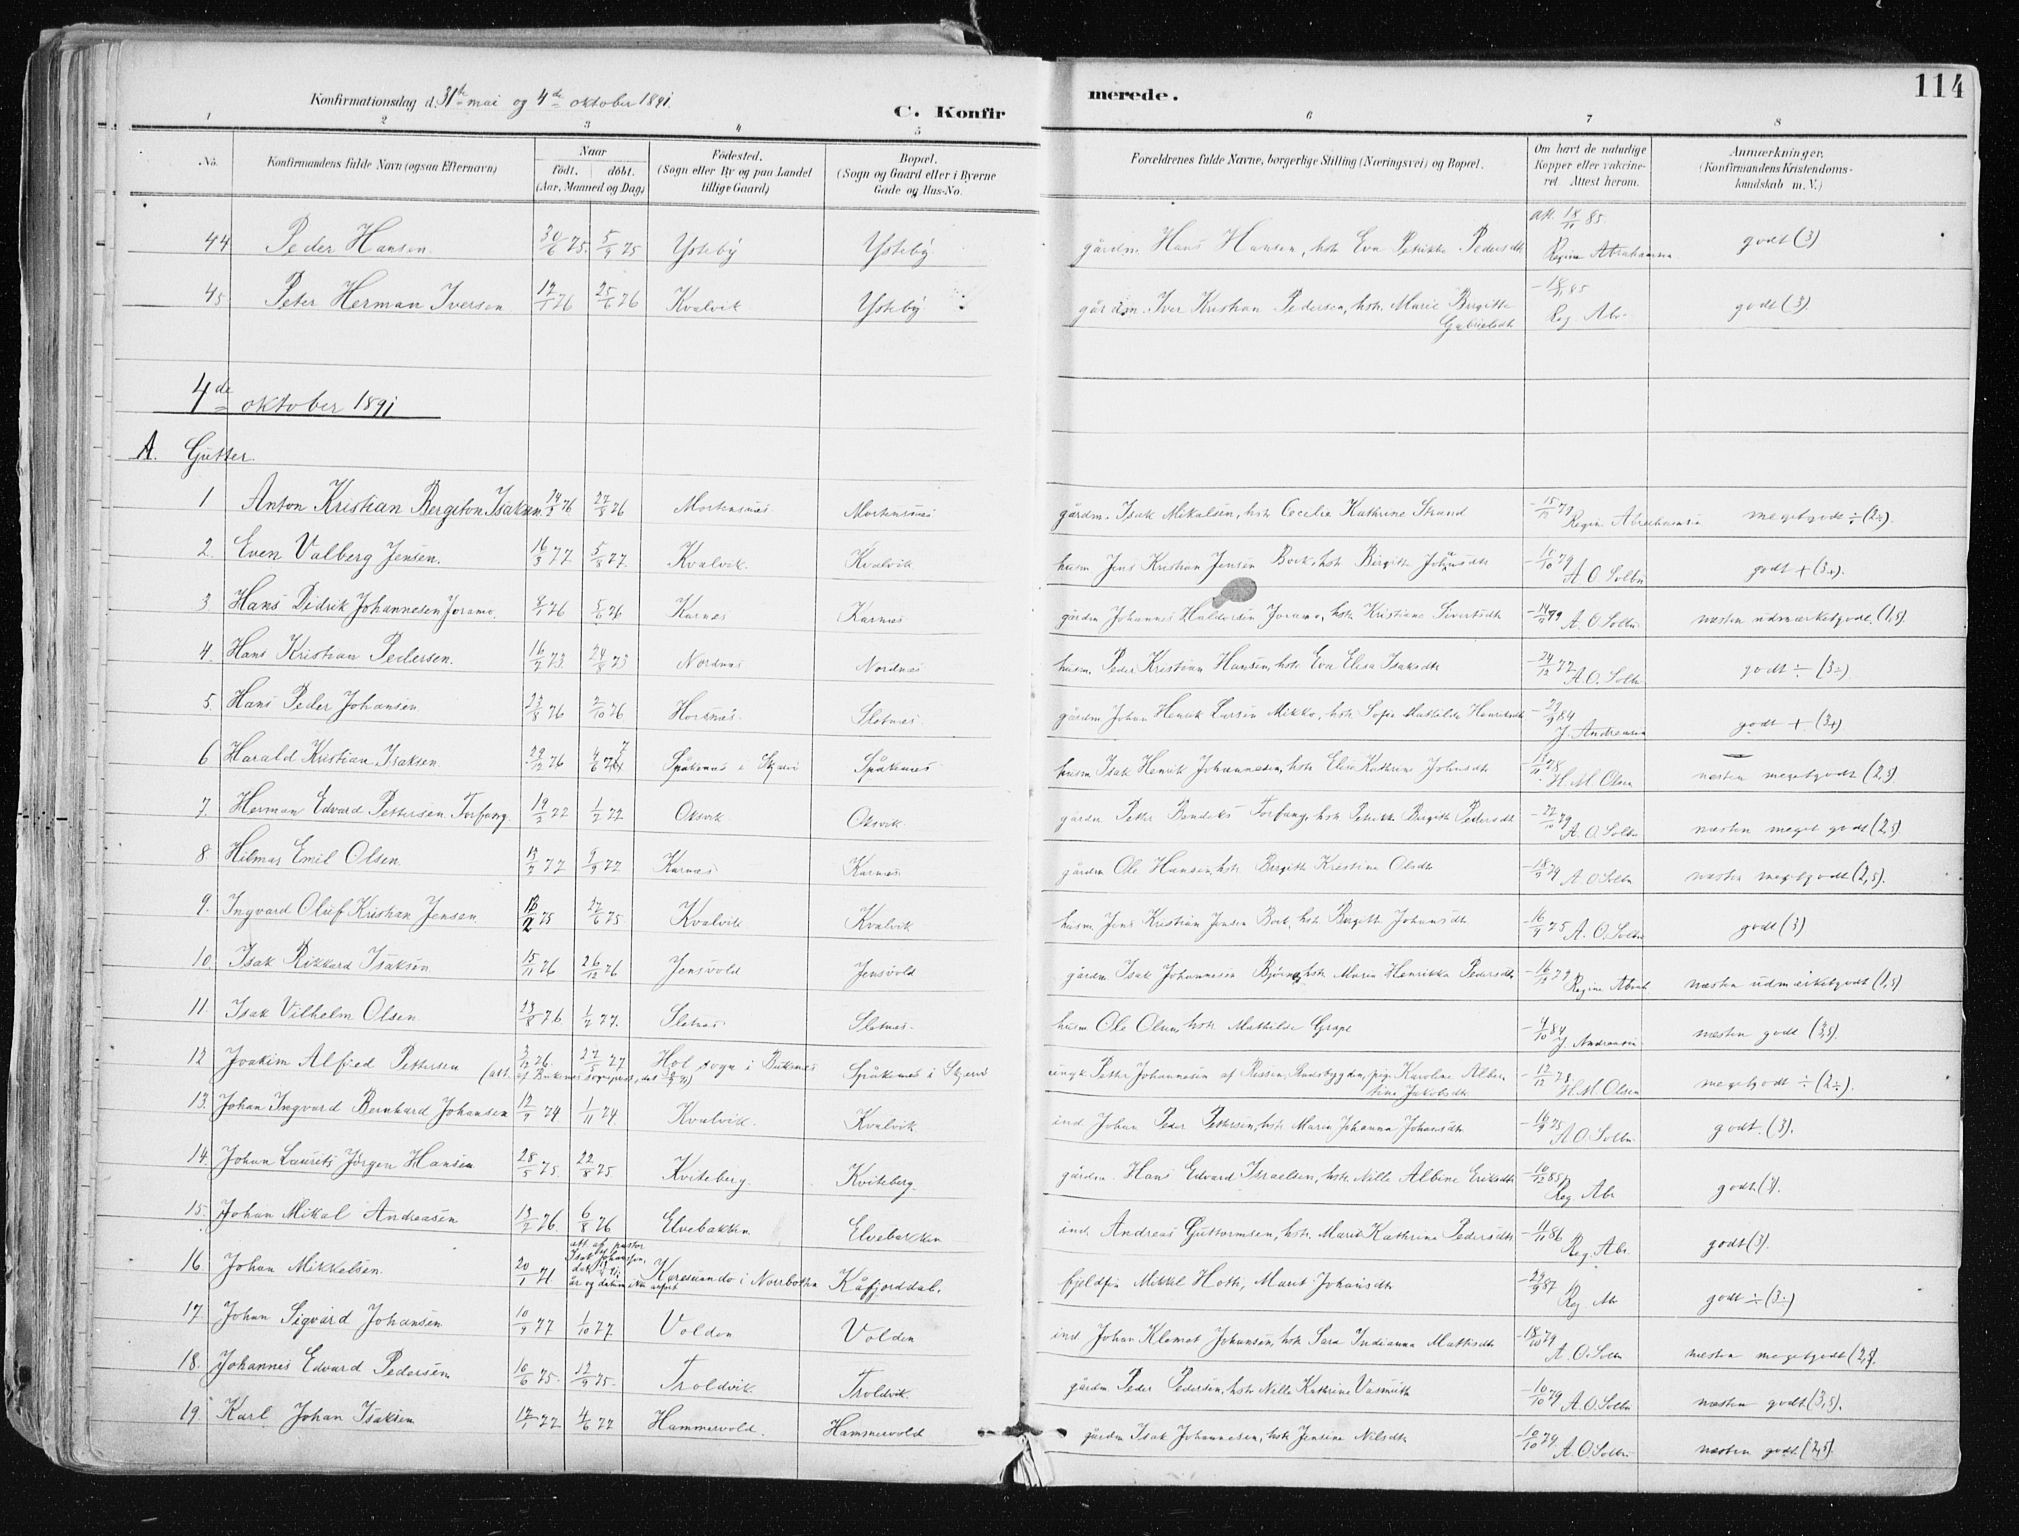 114
Konfirmationsdag d. 31te mai og 4de oktober 1891.
C. Konfirmerede.
1 2 3 4 5 6 7 8
No. Konfirmandens fulde Navn (ogsaa Efternavn) Naar Født. døbt. (Aar, Maaned og Dag) Fødested. (Sogn eller By og paa Landet tillige Gaard) Bopæl. (Sogn og Gaard eller i Byerne Gade og Hus-No. Forældrenes fulde Navne, borgerlige Stilling (Næringsvei) og Bopæl. Om havt de naturlige Kopper eller vakcineret Attest herom. Anmærkninger. (Konfirmandens Kristendomskundskab m. V.)
44 Peder Hansen. 30/6 75. 5/9 75 Ysteby Ysteby. gårdm. Hans Hansen, hstr. Eva Petrikke Pedersdtr att. 18/11 85. Regine Abrahamsen godt (3)
45 Peter Herman Iversen 17/1 76 25/6 76 Kvalvik Ysteby gårdm. Iver Kristian Pedersen, hstr. Marie Birgitte Gabrielsdtr Reg. Abr godt (3).
4de oktober 1891
A. Gutter.
1 Anton Kristian Bergiton Isaksen. 27/8 76 Mortensnes Mortensnæs gårdm. Isak Mikalsen, hstr Cecelie Kathrine Strand Regine Abrahamsen megetgodt ÷ (2÷).
2. Even Valberg Jensen. 16/3 77 5/8 77. Kvalvik. Kvalvik husm Jens Kristian Jensen Bock, hstr Birgitte Johansdtr 10/10 79 A. O. Solbu godt + (3+).
3 Hans Didrik Johannesen Joramo. Karnes Karnæs gårdm Johannes Haldorsen Joramo, hstr Kristiane Sivertsdtr A. O. Solbu næsten udmærketgodt. (1,5).
4. Hans Kristian Pedersen. 16/2 73. 24/8 73 Nordnæs Nordnæs husm. Peder Kristian Hansen, hstr. Eva Elisa Isaksdtr 24/12 77 A. O. Solbu godt ÷ (3÷)
5. Hans Peder Johansen 23/8 76 2/10 76 Horsnæs. Sletnæs. gårdm Johan Henrik Larsen Mikko, hstr. Sofie Mathilde Henriksdtr J. Andreasen godt + (3+)
6 Harald Kristian Isaksen 29/12 76 Spåkenæs i Skjervø Spåkenæs husm. Isak Henrik Johannesen, hstr. Elisa Kathrine Johnsdtr H. M. Olsen næsten megetgodt (2,5)
7. Herman Edvard Pettersen Torfang. 19/2 77 1/7 77 Oksvik Oksvik. gårdm Peter Bendiks Torfang, hstr Petrikke Birgitte Pedersdtr 22/10 79 A. O. Solbu næsten meget godt (2,5)
8 Hilmar Emil Olsen. 9/9 77 Karnæs Karnæs gårdm Ole Hansen, hstr Bergitte Kristine Olsdtr A. O. Solbu næsten megetgodt (2,5).
9. Ingvard Oluf Kristian Jensen 27/6 75 Kvalvik Kvalvik husm. Jens Kristian Jensen Bock, hstr. Bergitte Johansdtr 16/9 75 A. O. Solbu godt (3)
10. Isak Rikkard Isaksen 15/11 76 26/12 76 Jensvold Jensvold gårdm Isak Johannesen Bjørnes, hstr Maren Henrikke Pedersdtr Regine Abrah næsten udmærketgodt (1,5)
11. Isak Vilhelm Olsen 23/8 76 1/7 77. Sletnæs Sletnæs. husm Ole Olsen, hstr Mathilde Grape 4/10 84 J. Andreasen næsten godt (3,5).
12 Joakim Alfred Pettersen 3/12 26 27/5 77 Hol sogn i Buksnes Spåkenæs i Skjervø ungk Petter Johannesen af Rissen, pige Karoline Albertine Jakobsdtr H. M. Olsen megetgodt ÷ (2÷).
13. Johan Ingvard Bernhard Johansen 12/9 74. 1/11 74. Kvalvik. Kvalvik ind. Johan Peder Pettersen, hstr. Maren Johanna Johansdtr 16/9 75 A. O. Solbu godt. (3).
14. Johan Laurits Jørgen Hansen 28/5 75. 22/8 75 Kviteberg. Kviteberg. gårdm. Hans Edvard Israelsen, hstr. Nille Albine Eriksdtr 10/12 85 Reg. Abr godt (3).
15. Johan Mikal Andreasen 13/2 76. 6/8 76 Elvebakken Elvebakken ind. Andreas Guttormsen, hstr. Marit Kathrine Pedersdtr 11/11 86 Reg. Abr. godt (3).
16 Johan Mikkelsen 20/1 71 att af pastor Isak Johansson, Karesuando i Norrbotten Kåfjorddal. fjeldfin Mikkel Hotti, Marit Johansdtr 29/9 87 Reg. Abr godt ÷ (3÷)
17. Johan Sigvard Johansen 10/9 77 1/10 77 Volden Volden ind Johan Klemet Johansen, hstr Sara Indianna Mathisdtr 18/10 79 A. O. Solbu næsten megetgodt (2,5).
18. Johannes Edvard Pedersen 10/6 75. 12/9 75. Troldvik. Troldvik. gårdm Peder Pedersen, hstr. Nille Kathrine Vasmuth 10/10 79 A. O. Solbu næsten godt (3,5).
19 Karl Johan Isaksen 4/6 77 Hammervold. Hammervold gårdm Isak Johannesen, hstr Jensine Nilsdtr 10/10 79. A. O. Solbu næsten godt (2,5)